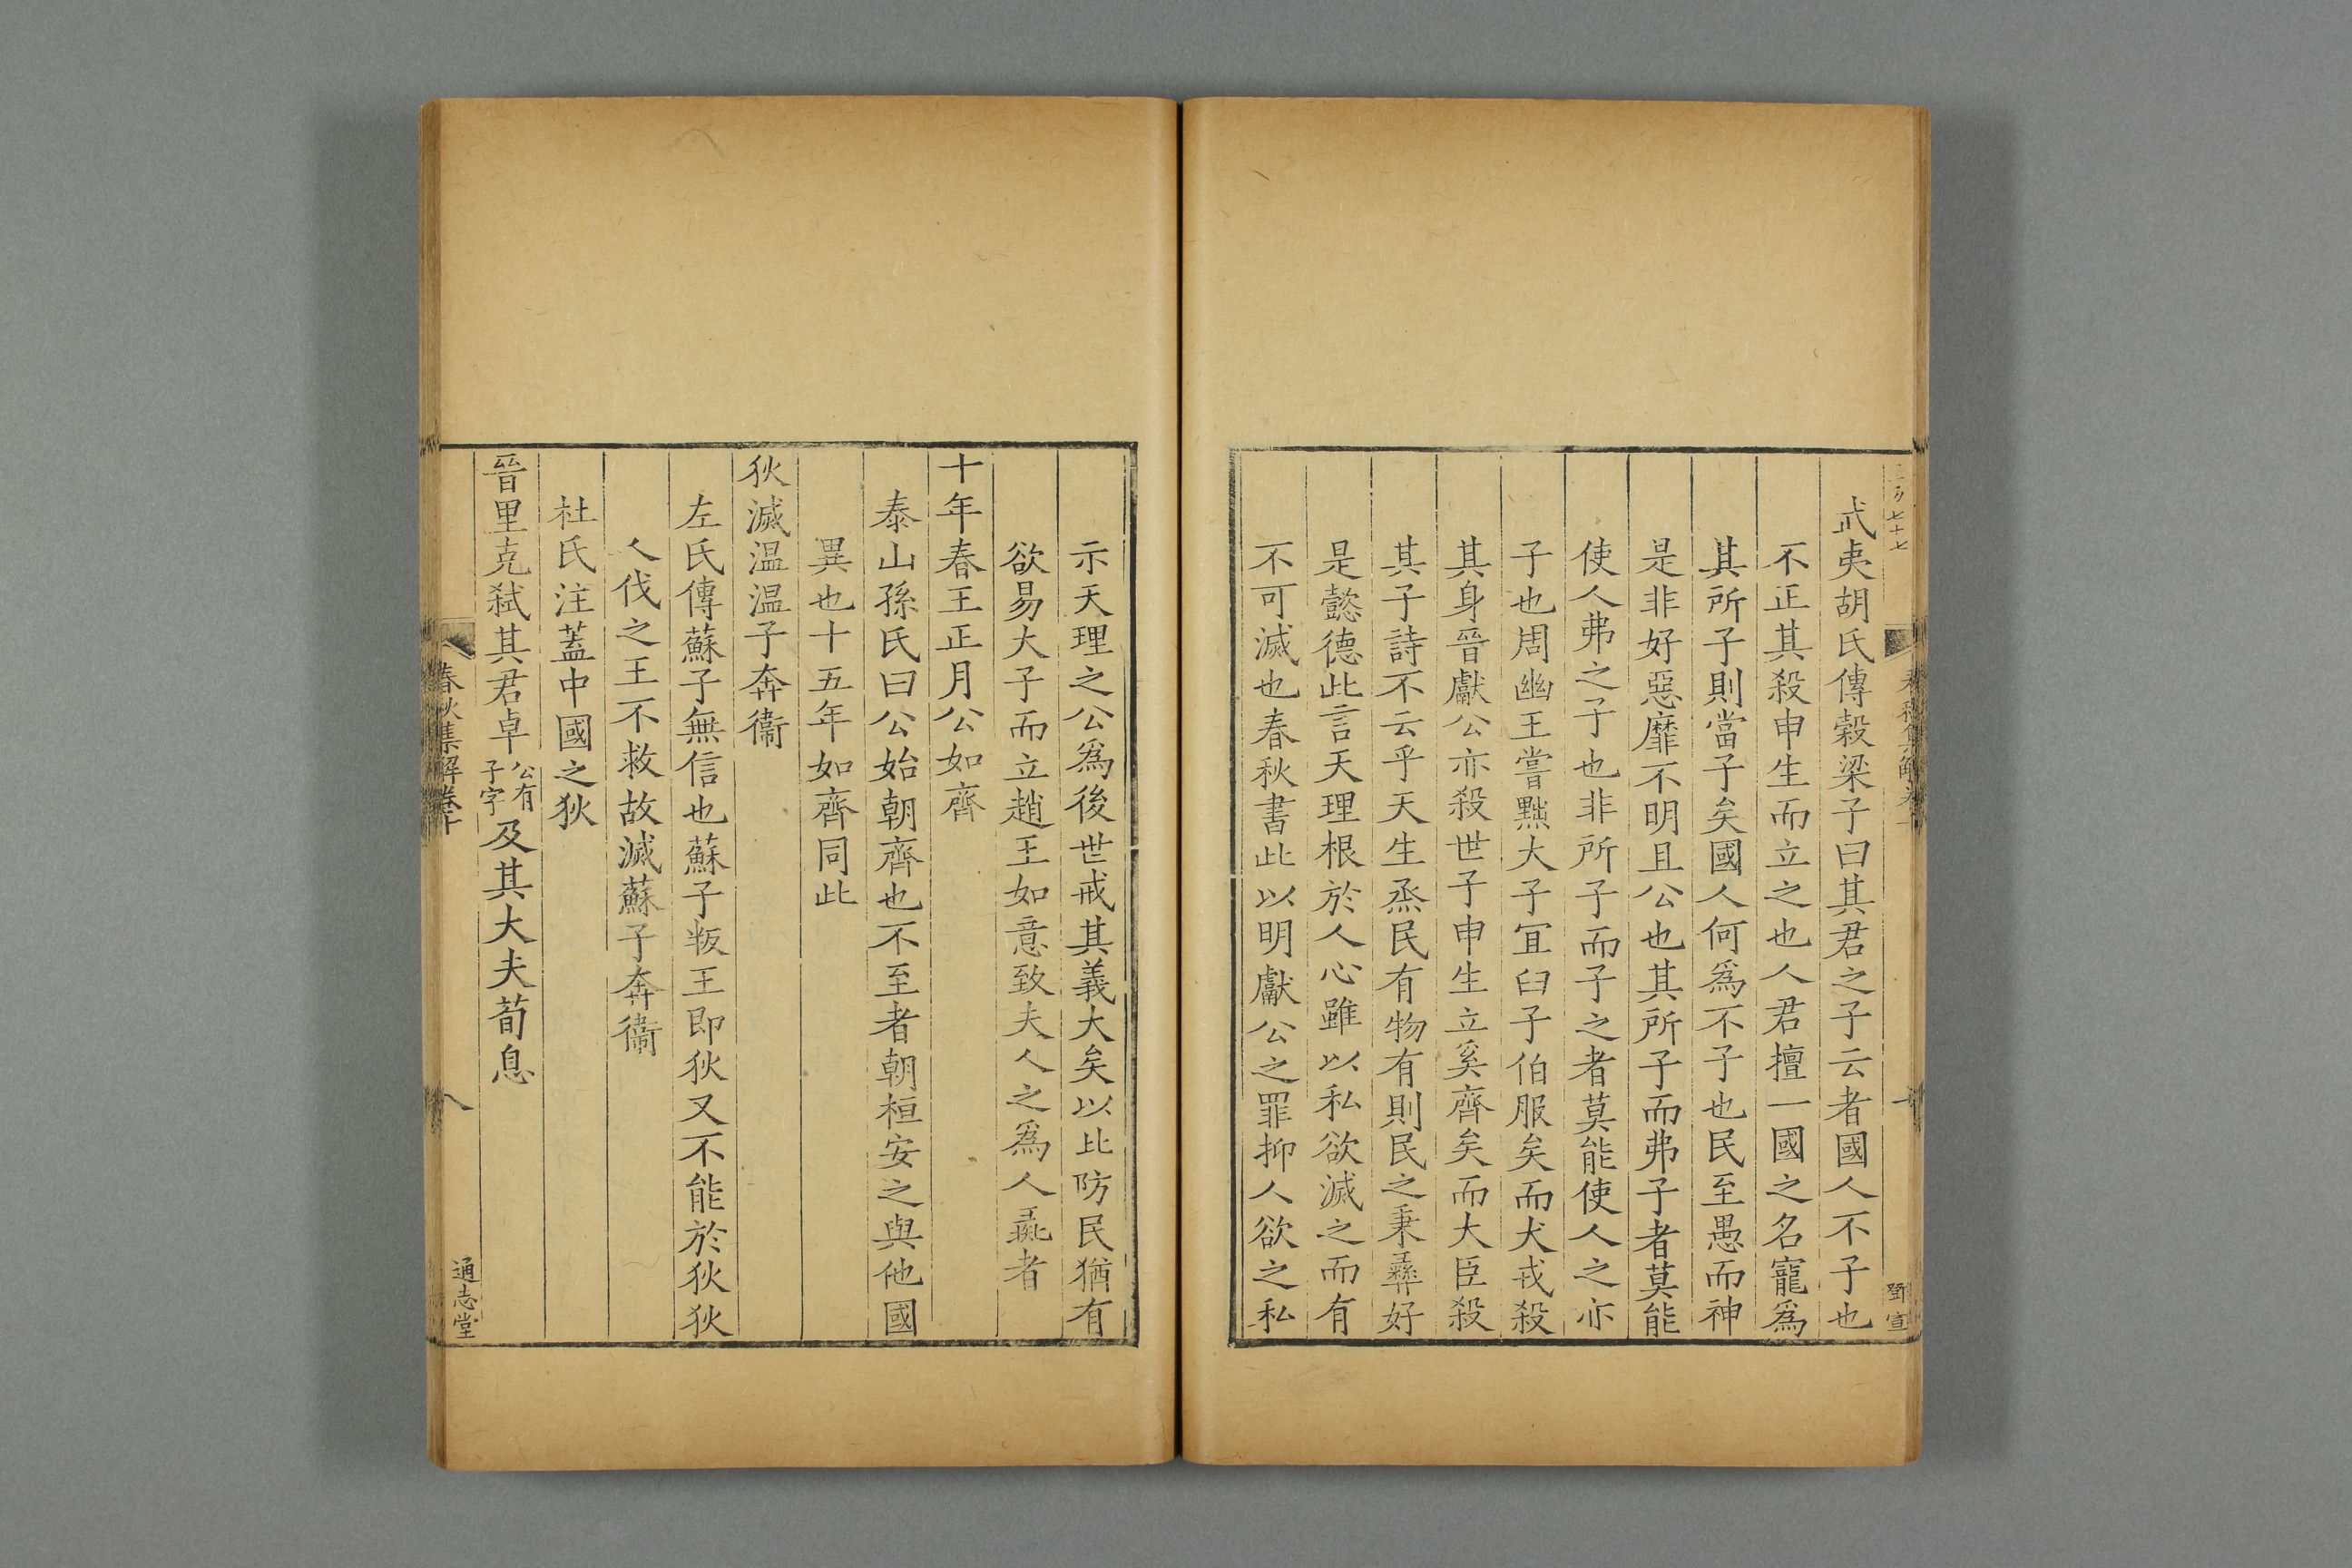 武夷胡氏傳穀梁子曰其君之子云者國人不子也
不正其殺申生而立之也人君擅一國之名寵爲
其所子則當子矣國人何爲不子也民至愚而神
是非好惡靡不明且公也其所子而弗子者莫能
使人弗之子也非所子而子之者莫能使人之亦
子也周幽王嘗黜大子宜臼子伯服矣而犬戎殺
其身晉獻公亦殺世子申生立奚齊矣而大臣殺
其子詩不云乎天生烝民有物有則民之秉彝好
是懿德此言天理根於人心雖以私欲滅之而有
不可滅也春秋書此以明獻公之罪抑人欲之私
示天理之公爲後世戒其義大矣以此防民猶有
欲易大子而立趙王如意致夫人之爲人彘者
十年春王正月公如齊
泰山孫氏曰公始朝齊也不至者朝桓安之與他國
異也十五年如齊同此
狄滅温温子奔衞
左氏傳蘇子無信也蘇子叛王即狄又不能於狄狄
人伐之王不救故滅蘇子奔衞
杜氏注蓋中國之狄
晉里克弑其君卓公有子字及其大夫荀息
春秋集解卷十
八
通志堂